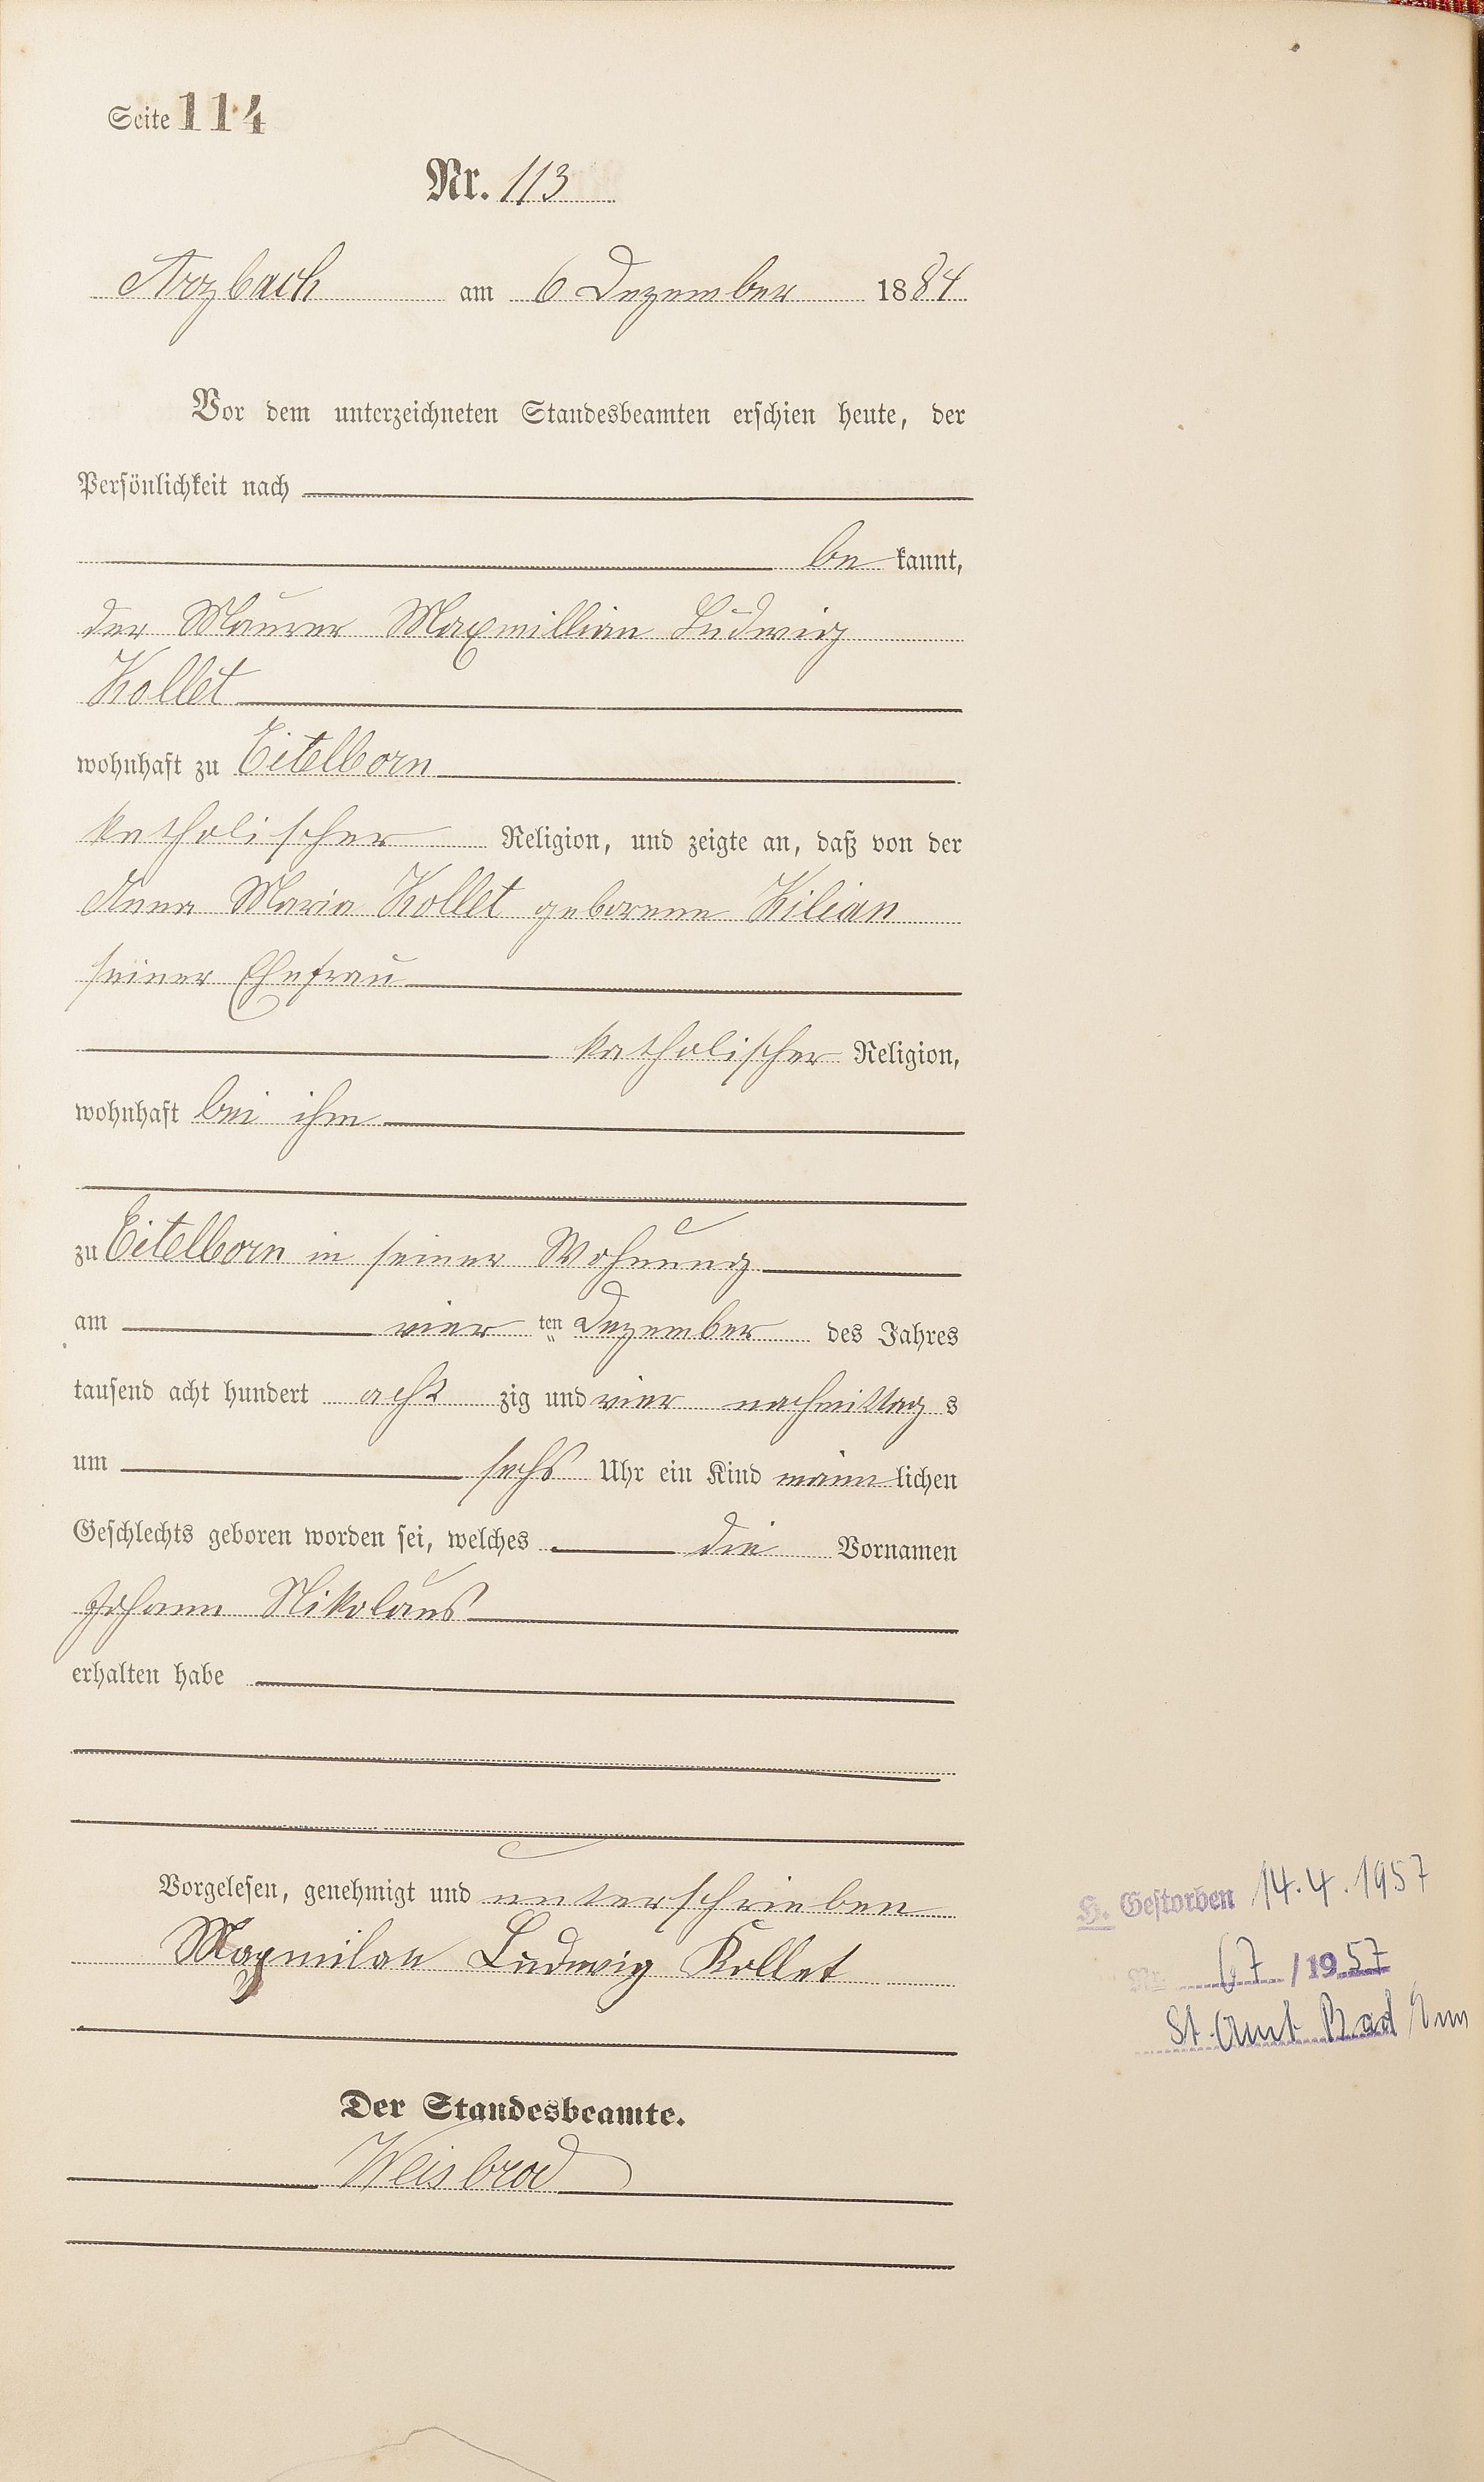 Seite 114
Nr. 113
Arzbach am 6 Dezember 1884
Vor dem unterzeichneten Standesbeamten erschien heute, der
Persönlichkeit nach
be kannt,
der Maurer Maxmillian Ludwig
Kollet
wohnhaft zu Eitelborn
katholischer Religion, und zeigte an, daß von der
Anna Maria Kollet geborene Kilian
seiner Ehefrau
katholischer Religion,
wohnhaft bei ihm
zu Eitelborn in seiner Wohnung
am vier ten Dezember des Jahres
tausend acht hundert acht zig und vier nachmittag s
um sechs Uhr ein Kind männ lichen
Geschlechts geboren worden sei, welches die Vornamen
Johann Nikolaus
erhalten habe
Vorgelesen, genehmigt und unterschrieben
Maxmilan Ludwig Kollet
Der Standesbeamte.
Weisbrod
H. Gestorben 14.4.1957
Nr. 67 / 1957
St. Amt Bad Ems